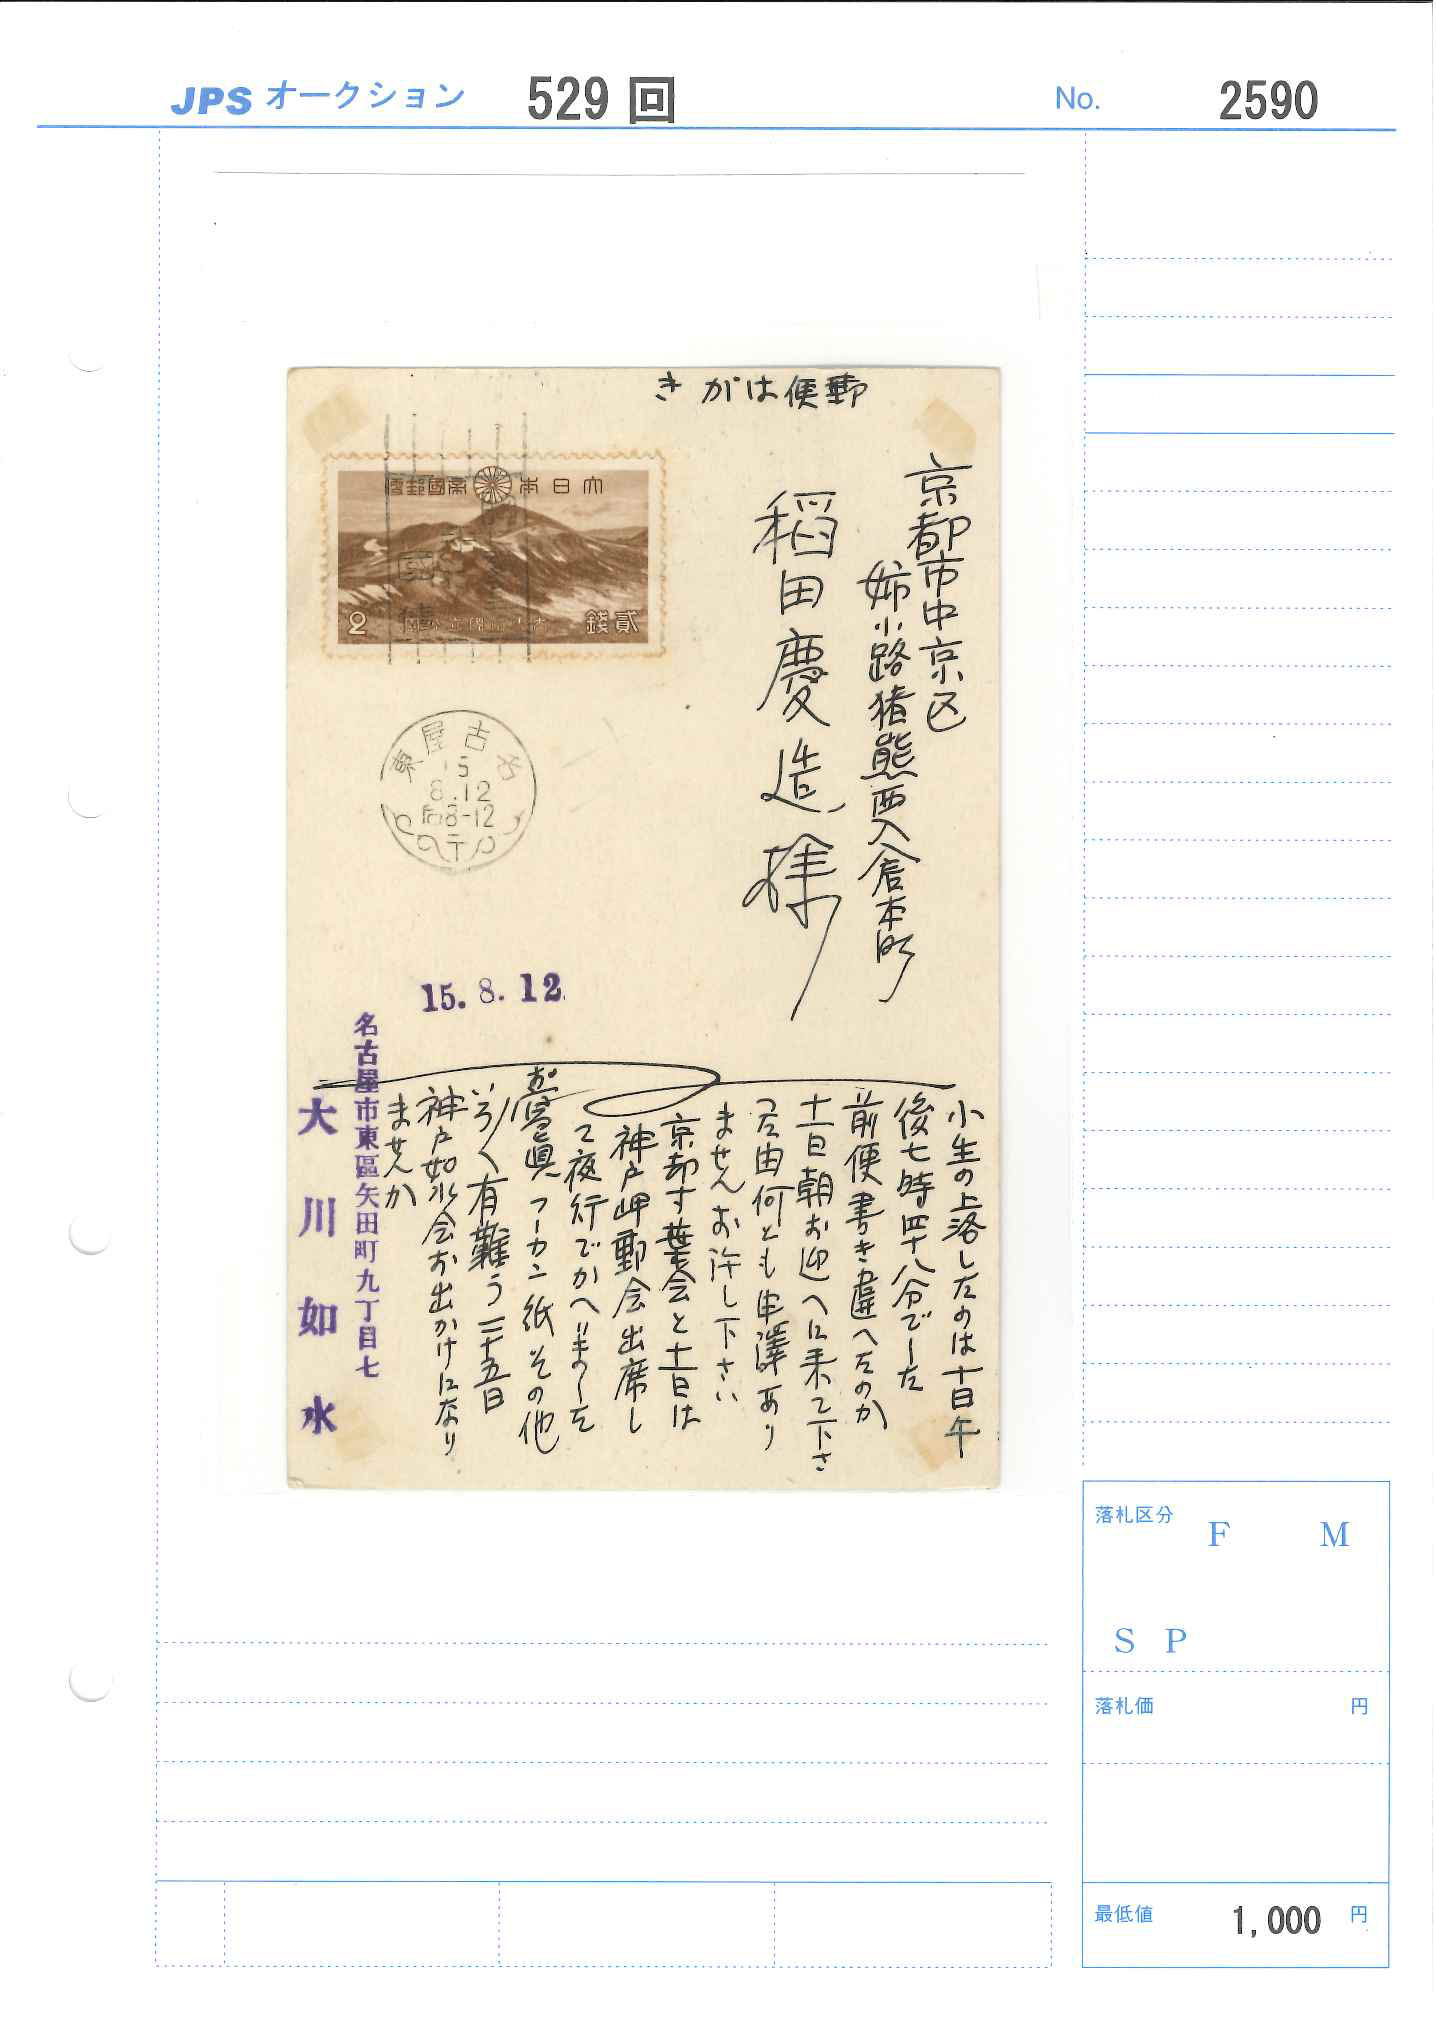 JPS オークション 529 回 No. 2590
郵便はがき
大日本帝國郵便
2 貳錢
名古屋東
15
8.12
后8-12
京都市中京区
姉小路猪熊西入倉本町
稻田慶造様
15.8.12
小生の上落したのは十日午
後七時四十八分でした
前便書き違へたのか
十一日朝お迎へに来て下さ
つた由何とも申澤あり
ませんお許し下さい
京都寸葉会と十一日は
神戸岬郵会出席し
て夜行でかへりました
お寫眞フーカン紙その他
いろ／＼有難う二十五日
神戸如水会お出かけになり
ませんか
名古屋市東區矢田町九丁目七
大川如水
落札区分 F M
S P
落札価 円
最低値 1,000 円